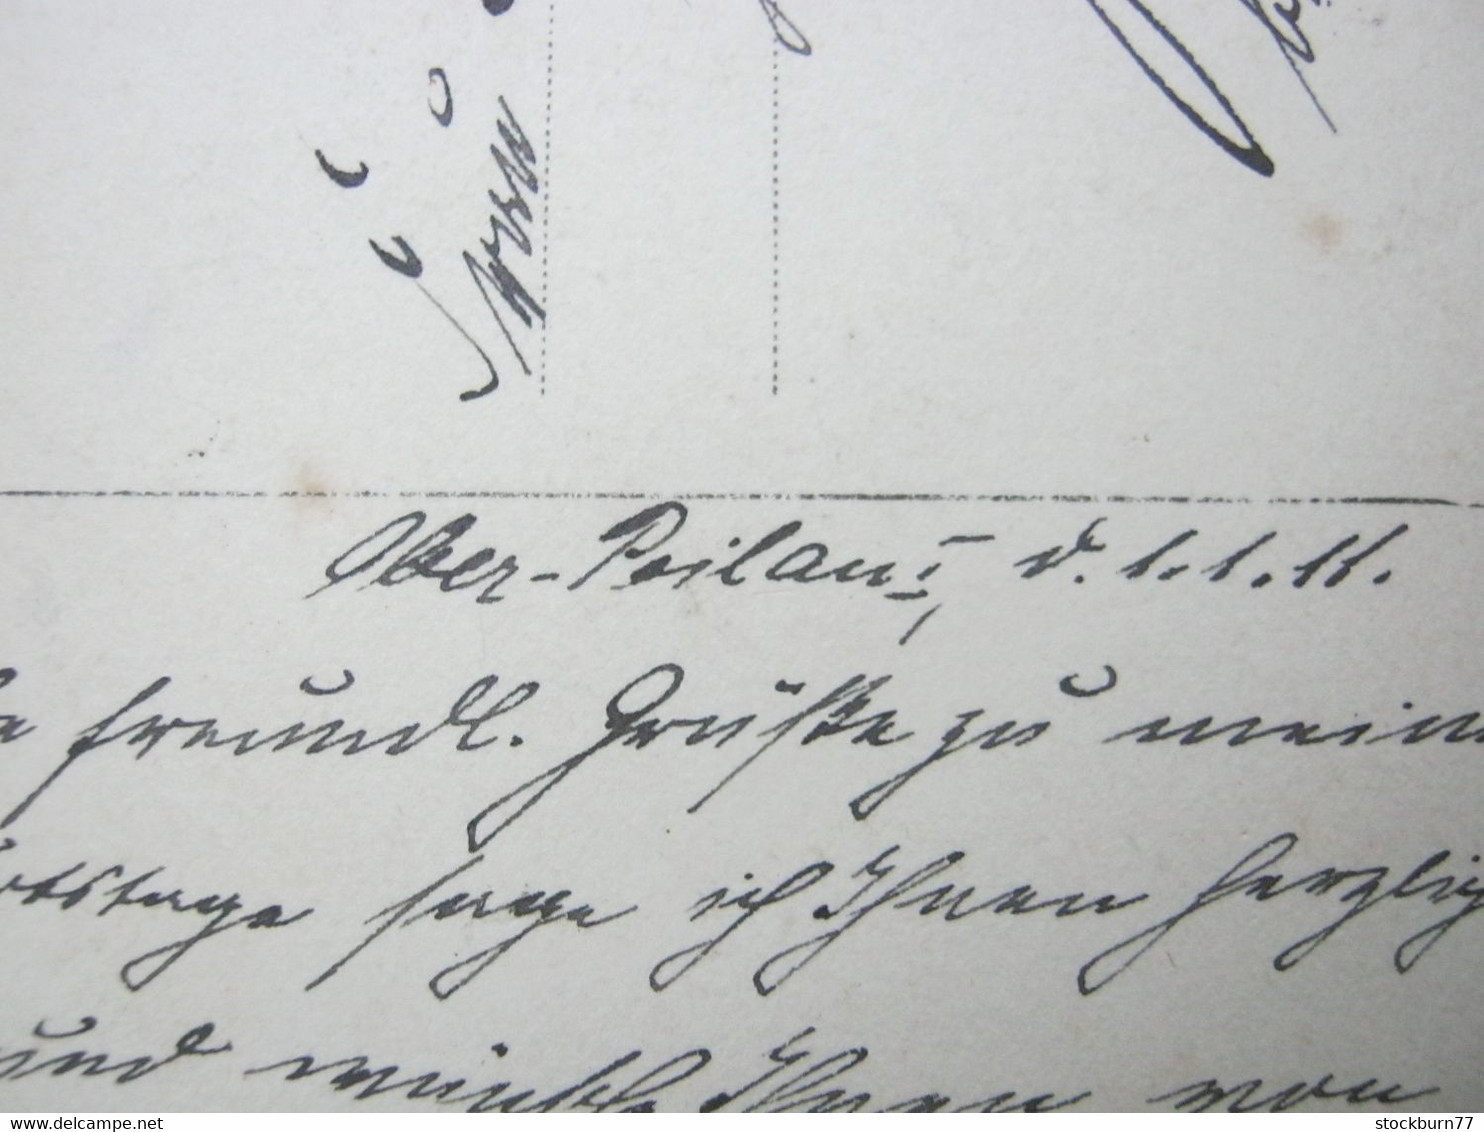 Ober-Peilau I, d. 1.1.11.
freundl. Grüße zu mein
rtstage sage ich Ihnen herzlig
und wünsche Ihnen von
delcampe.net
stockburn77